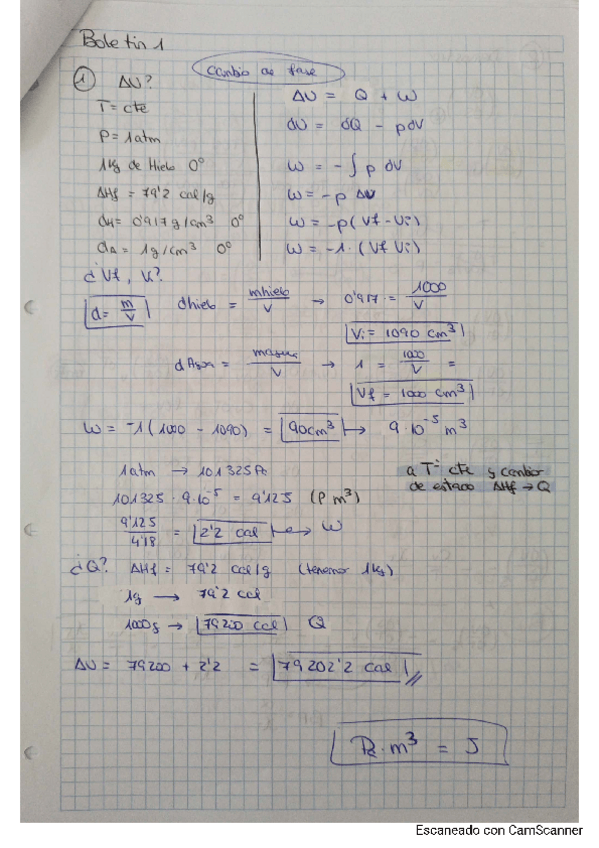 Boletin 1
Cambio de fase
① ΔU?
T = cte
P = 1atm
1Kg de Hielo 0°
ΔHf = 79'2 cal/g
dH = 0'917 g/cm³ 0°
dA = 1g/cm³ 0°
ΔU = Q + W
dU = dQ - pdV
W = - ∫ p dV
W = -p ΔV
W = -p (Vf - Vi)
W = -1 · (Vf Vi)
¿Vf, Vi?
d = m/V
dhielo = mhielo/V → 0'917 = 1000/V
Vi = 1090 cm³
dAgua = magua/V → 1 = 1000/V =
Vf = 1000 cm³
W = -1 (1000 - 1090) = 90cm³ → 9·10⁻⁵ m³
1atm → 101325 Pa
101325 · 9·10⁻⁵ = 9'125 (P m³)
9'125/4'18 = 2'2 cal → W
a Tª cte y cambio
de estado ΔHf → Q
¿Q? ΔHf = 79'2 cal/g (tenemos 1kg)
1g → 79'2 cal
1000g → 79200 cal Q
ΔU = 79200 + 2'2 = 79202'2 cal
Pa · m³ = J
Escaneado con CamScanner